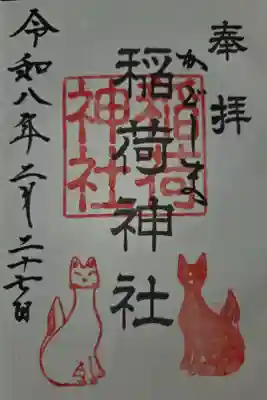 奉拝
かどしま
稲荷神社
稲荷
神社
令和八年二月二十七日